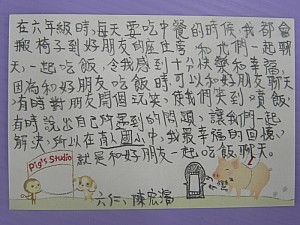 在六年級時,每天要吃中餐的時候,我都會
搬椅子到好朋友的座位旁 和他們一起聊
天,一起吃飯,令我感到十分快樂和幸福,
因為和好朋友吃飯時,可以和好朋友聊天,
有時對朋友開個玩笑,使我們笑到噴飯,
有時說出自己所遇到的問題,讓我們一起
解決,所以在國小中,我最幸福的回憶,
就是和好朋友一起吃飯聊天。
Pig's Studio
六仁,陳宏